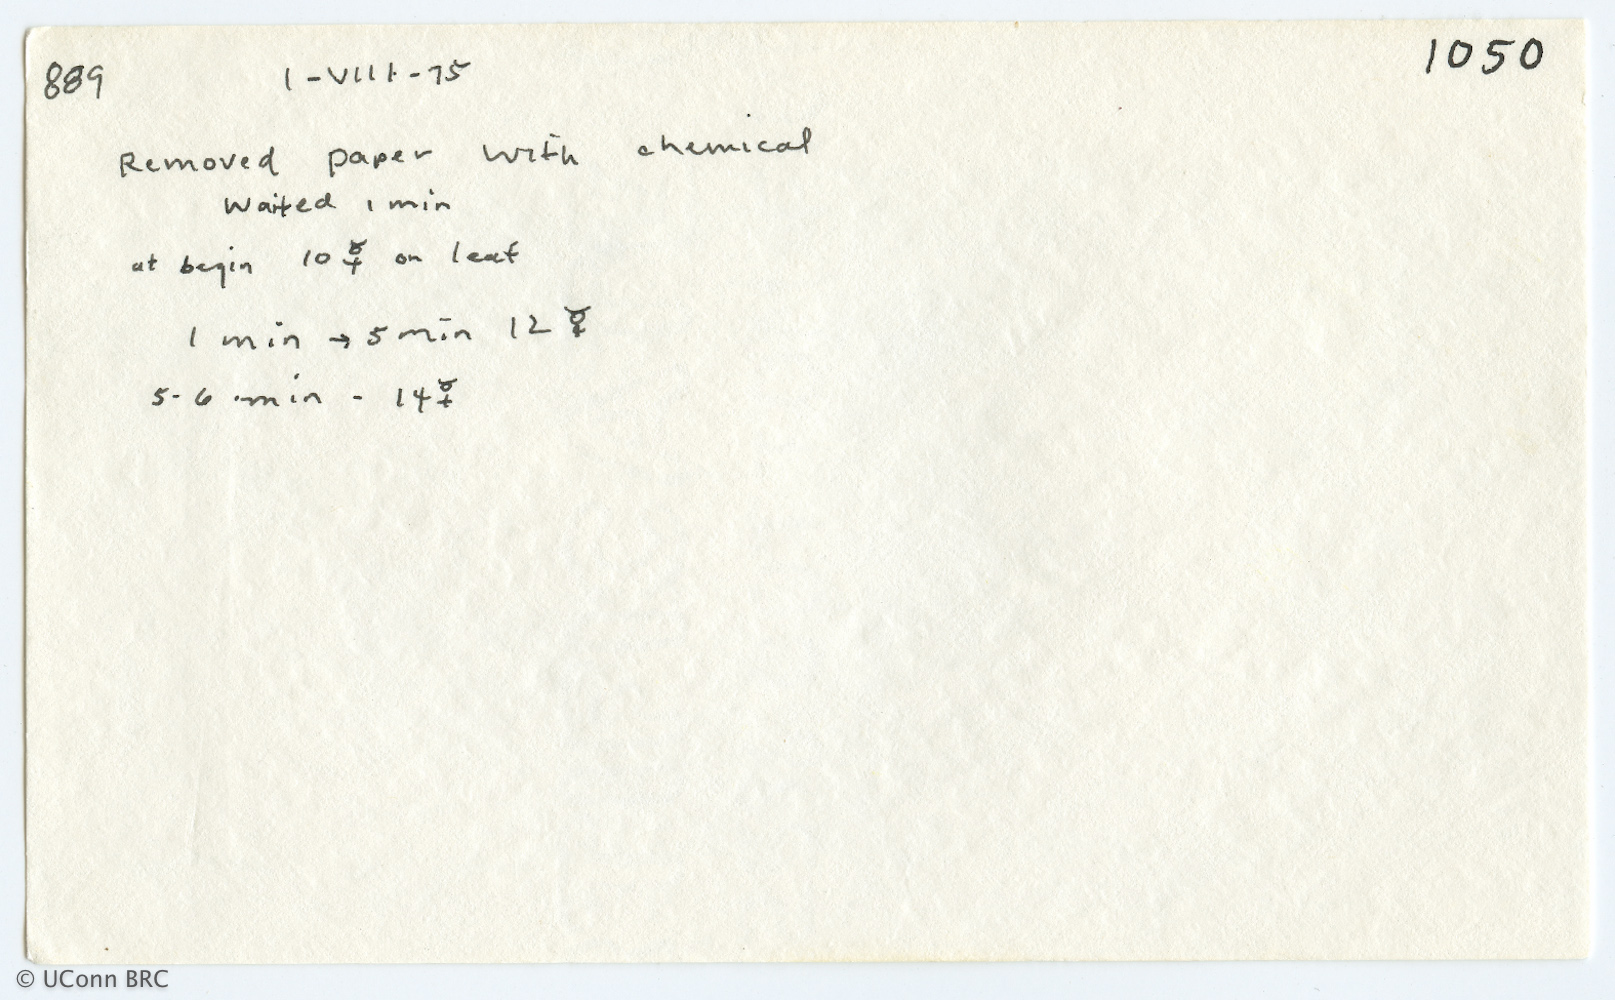 889 1-VIII-75 1050
Removed paper with chemical
Waited 1 min
at begin 10 ☿ on leaf
1 min → 5 min 12 ☿
5-6 min - 14 ☿
© UConn BRC